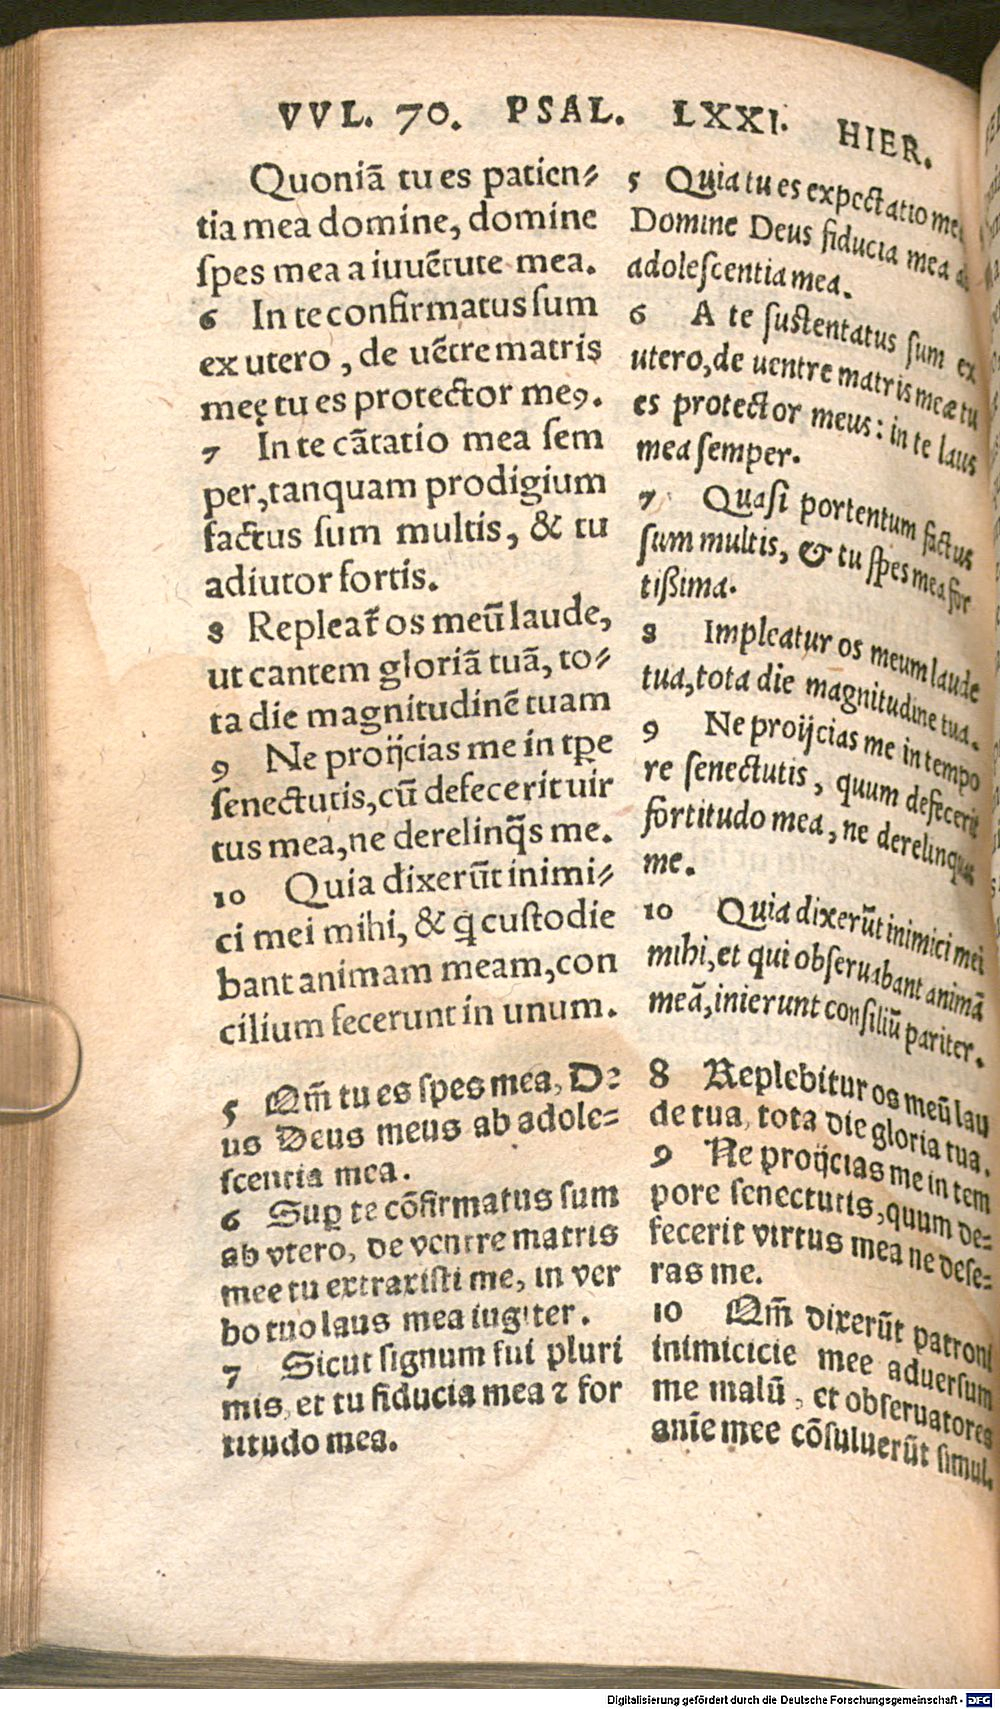 VVL. 70. PSAL. LXXI. HIER.
Quoniã tu es patien⸗
tia mea domine, domine
ſpes mea a iuuẽtute mea.
6 In te confirmatus ſum
ex utero, de uẽtre matris
meę tu es protector meꝰ.
7 In te cãtatio mea ſem
per, tanquam prodigium
factus ſum multis, & tu
adiutor fortis.
8 Repleat᷑ os meũ laude,
ut cantem gloriã tuã, to⸗
ta die magnitudinẽ tuam
9 Ne proijcias me in tꝑe
ſenectutis, cũ defecerit uir
tus mea, ne derelinq̃s me.
10 Quia dixerũt inimi⸗
ci mei mihi, & q̃ cuſtodie
bant animam meam, con
cilium fecerunt in unum.
5 Quia tu es expectatio mea
Domine Deus fiducia mea ab
adoleſcentia mea.
6 A te ſuſtentatus ſum ex
utero, de uentre matris meæ tu
es protector meus: in te laus
mea ſemper.
7 Quaſi portentum factus
ſum multis, & tu ſpes mea for
tißima.
8 Impleatur os meum laude
tua, tota die magnitudine tua.
9 Ne proijcias me in tempo
re ſenectutis, quum defecerit
fortitudo mea, ne derelinquas
me.
10 Quia dixerũt inimici mei
mihi, et qui obſeruabant animã
meã, inierunt conſiliũ pariter.
5 Qm̃ tu es ſpes mea, De⸗
us Deus meus ab adole⸗
ſcentia mea.
6 Suꝑ te cõfirmatus ſum
ab vtero, de ventre matris
mee tu extraxiſti me, in ver
bo tuo laus mea iugiter.
7 Sicut ſignum fui pluri
mis, et tu fiducia mea ⁊ for
titudo mea.
8 Replebitur os meũ lau
de tua, tota die gloria tua.
9 Ne proijcias me in tem
pore ſenectutis, quum de⸗
fecerit virtus mea ne deſe⸗
ras me.
10 Qm̃ dixerũt patroni
inimicicie mee aduerſum
me malũ, et obſeruatores
anĩe mee cõſuluerũt ſimul.
Digitalisierung gefördert durch die Deutsche Forschungsgemeinschaft - DFG